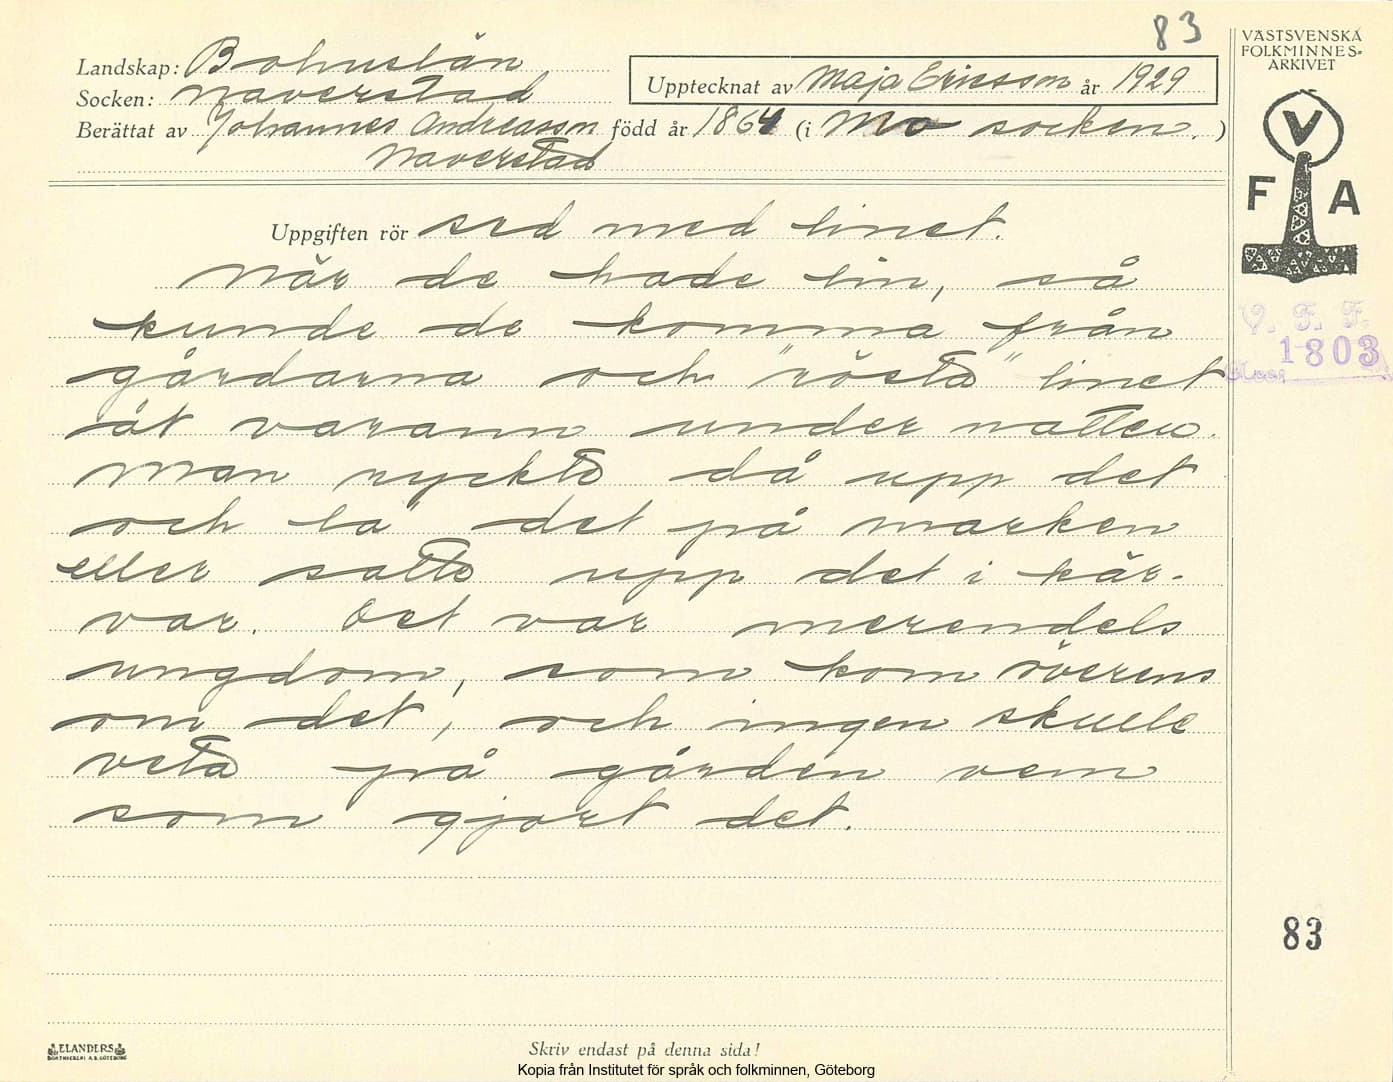 83
VÄSTSVENSKA
FOLKMINNES-
ARKIVET
Landskap: Bohuslän
Upptecknat av Maja Ericsson år 1929
Socken: Naverstad
Berättat av Johannes Andreasson född år 1864 (i Mo socken.)
Naverstad
V
F A
Uppgiften rör sed med linet.
När de hade lin, så
kunde de komma från
gårdarna och "rösta" linet
åt varann under natten.
Man ryckte då upp det
och la' det på marken
eller satte upp det i kär-
var. Det var merendels
ungdom, som kom överens
om det, och ingen skulle
veta på gården vem
som gjort det.
V. F. F.
1803
83
ELANDERS
BOKTRYCKERI A.B. GÖTEBORG
Skriv endast på denna sida!
Kopia från Institutet för språk och folkminnen, Göteborg